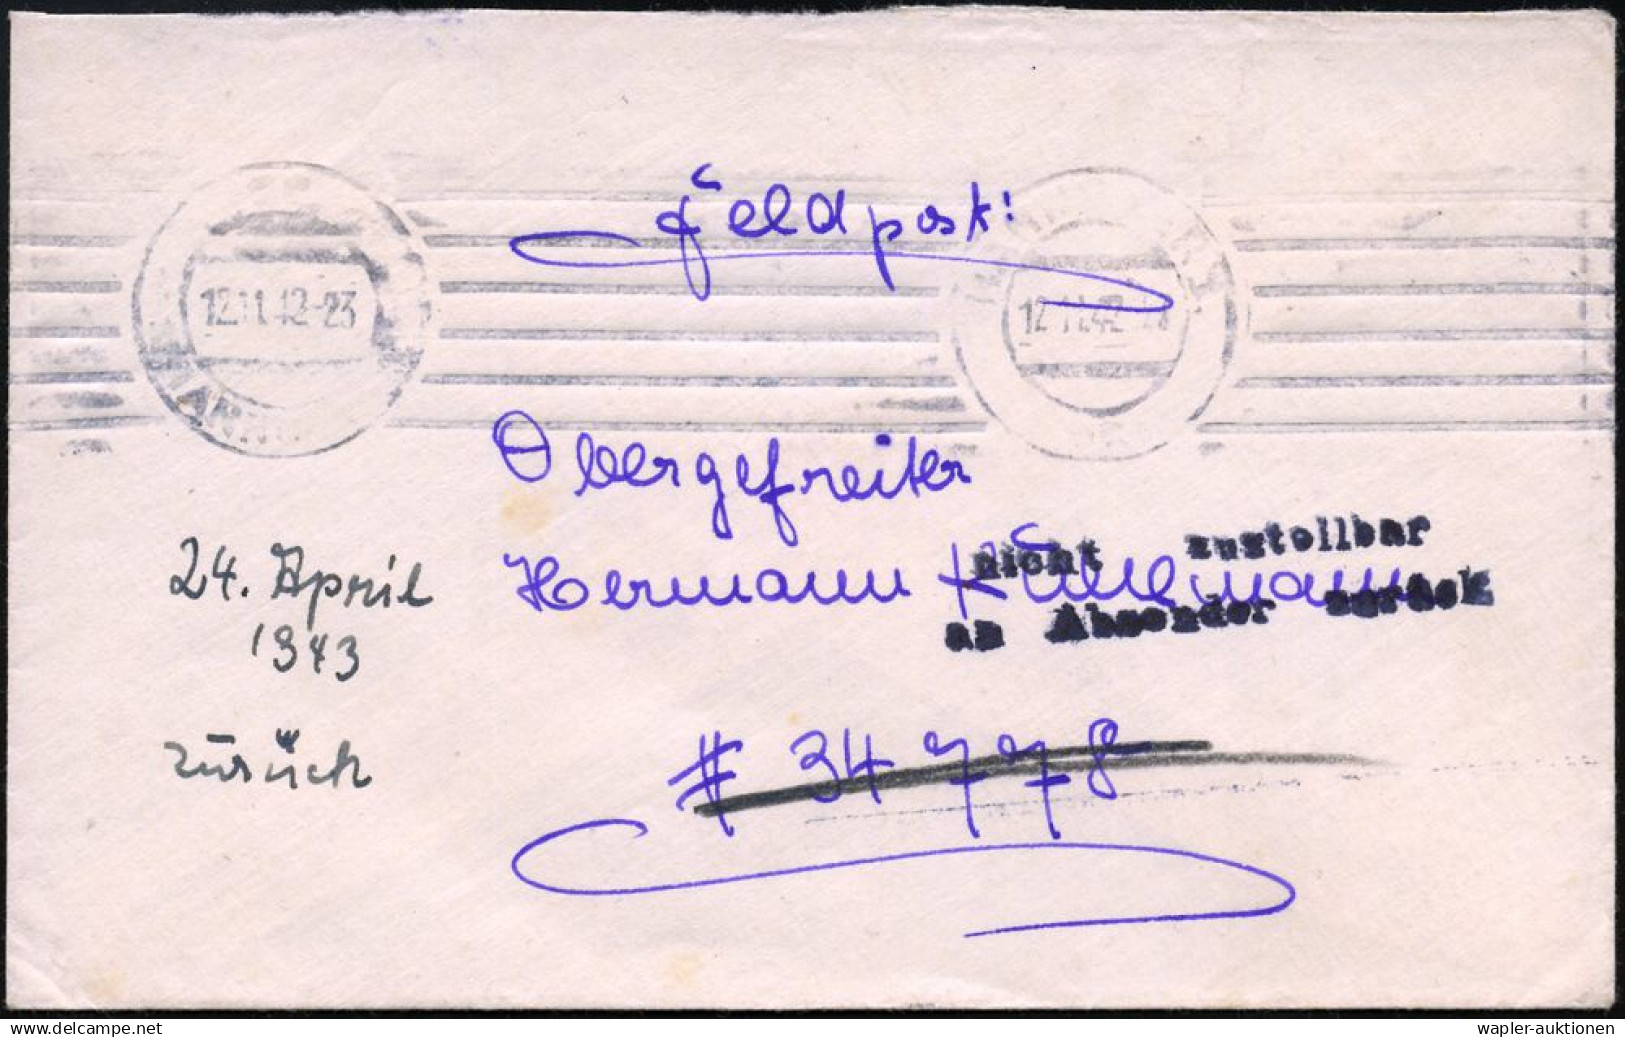 Feldpost:
12.11.42-23
12.11.42-23
Obergefreiter
Hermann
nicht zustellbar
an Absender zurück
24. April
1943
zurück
# 34778
www.delcampe.net
wapler-auktionen